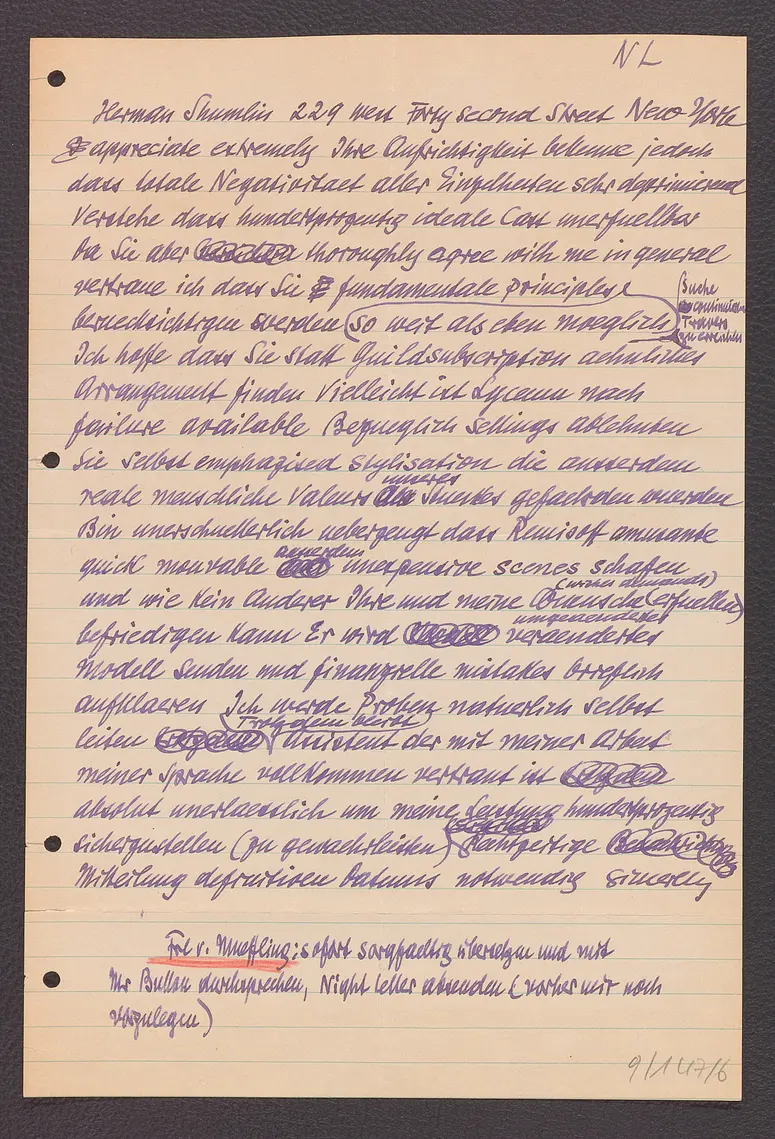 NL
Herman Shumlin 229 West Forty second Street New York
appreciate extremely Ihre Aufrichtigkeit bekenne jedoch
dass totale Negativitaet aller Einzelheiten sehr deprimierend
Verstehe dass hundertprozentig ideale Cast unerfuellbar
Da Sie aber thoroughly agree with me in general
vertraue ich dass Sie fundamentale principles
Suche
Travers
zu erreichen
beruecksichtigen werden (so weit als eben moeglich)
Ich hoffe dass Sie statt Guildsubscription aehnliches
Arrangement finden Vielleicht ist Lyceum nach
failure available Bezueglich Settings ablehnten
Sie selbst emphazised stylisation die ausserdem
unseres
reale menschliche Valeurs Stueckes gefaehrden wuerden
Bin unerschuetterlich ueberzeugt dass Remisoff amusante
ausserdem
quick mouvable unexpensive scenes schafen
(unsere demands)
und wie kein Anderer Ihre und meine Wuensche (erfuellen)
umgeaendertes
befriedigen kann Er wird veraendertes
Modell senden und finanzielle mistakes brieflich
aufklaeren Ich werde Proben natuerlich selbst
Trotzdem bleibt
leiten Assistent der mit meiner Arbeit
meiner Sprache vollkommen vertraut ist
absolut unerlaesslich um meine Leistung hundertprozentig
sicherzustellen (zu gewaehrleisten) Rechtzeitige
Mitteilung definitiven Datums notwendig Sincerely
Frl v. Mueffling: sofort sorgfaeltig übersetzen und mit
Mr Bullon durchsprechen, Night letter absenden (vorher mir noch
vorzulegen)
9/147/6